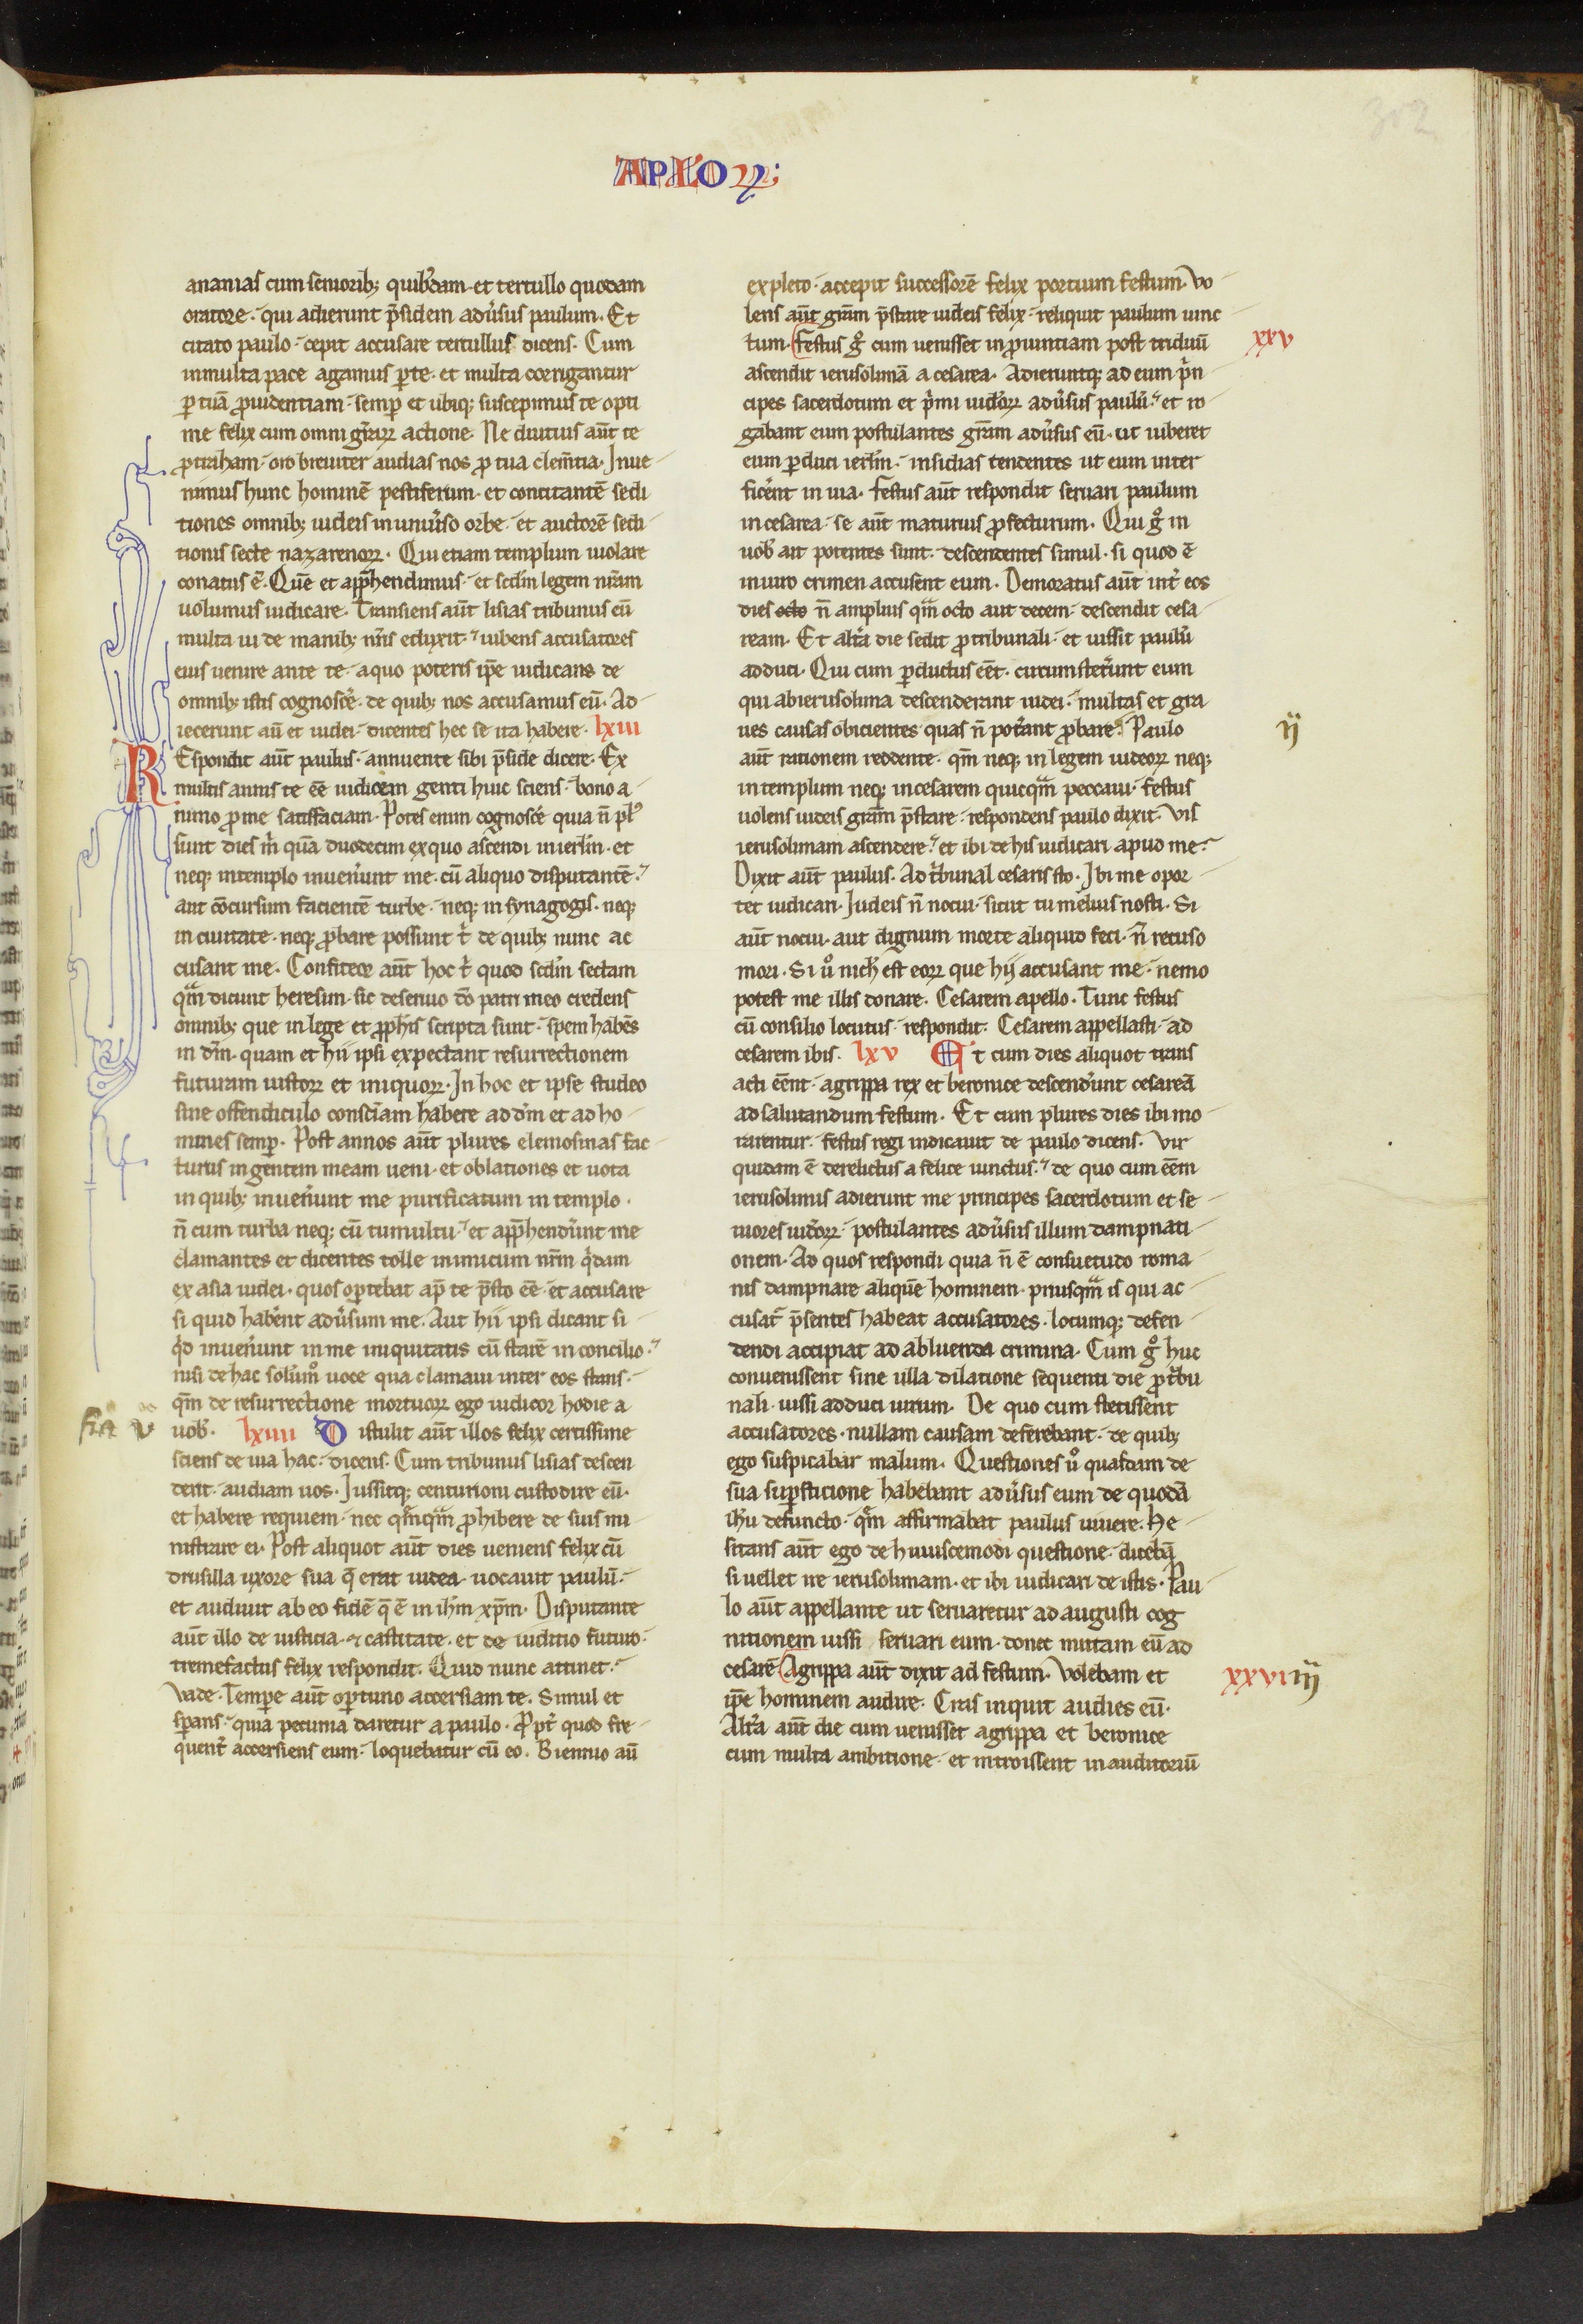 302
APLOꝜ;
ananias cum seniorib; quibꝰdam. et tertullo quodam
oratore. qui adierunt p̄sidem adúsus paulum. Et
citato paulo. cepit accusare tertullus dicens. Cum
in multa pace agamus ꝑ te. et multa corrigantur
ꝑ tuā ꝓuidentiam. semꝑ et ubiq; suscepimus te opti
me felix cum omni gr̄aꝝ actione. Ne diutius aūt te
ꝓtraham. oro breuiter audias nos ꝓ tua clem̄tia. Inue
nimus hunc hominē pestiferum. et concitantē sedi
tiones omnib; iudeis in uniúso orbe. et auctorē sedi
tionis secte nazarenoꝝ. Qui etiam templum uiolare
conatus ē. Quē et app̄hendimus. et scd̄m legem nr̄am
uolumus iudicare. Transiens aūt lisias tribunus cū
multa ui de manib; nr̄is eduxit. iubens accusatores
eius uenire ante te. a quo poteris ip̄e iudicans de
omnib; istis cognosce̓. de quib; nos accusamus eū. Ad
iecerunt aū et iudei. dicentes hec se ita habere. lxiii
REspondit aūt paulus. annuente sibi p̄side dicere. Ex
multis annis te eē iudicem genti huic sciens. bono a
nimo ꝓ me satisfaciam. Potes enim cognosce̓ quia n̄ plꝰ
sunt dies m̓ quā duodecim ex quo ascendi in ierl̄m. et
neq; in templo inuen̓unt me. cū aliquo disputantē.
aut cōcursum facientē turbe. neq; in synagogis. neq;
in ciuitate. neq; ꝓbare possunt t̓ de quib; nunc ac
cusant me. Confiteor aūt hoc t̓ quod scd̄m sectam
qᷓm dicunt heresim. sic deseruio dō patri meo credens
omnib; que in lege et ꝓph̄is scripta sunt. spem habēs
in dm̄. quam et hii ipsi expectant resurrectionem
futuram iustoꝝ et iniquoꝝ. In hoc et ipse studeo
sine offendiculo consciā̄m habere ad dm̄ et ad ho
mines semꝑ. Post annos aūt plures elemosinas fac
turus in gentem meam ueni. et oblationes et uota
in quib; inuen̓unt me purificatum in templo.
n̄ cum turba neq; cū tumultu. et app̄hend̓unt me
clamantes et dicentes tolle inimicum nr̄m q̓dam
ex asia iudei. quos oꝑtebat ap̄ te p̄sto eē. et accusare
si quid hab̓ent adúsum me. Aut hii ipsi dicant si
q̓d inuen̓unt in me iniquitatis cū starē in concilio.
nisi de hac solūmͦ uoce qua clamaui inter eos stans.
qm̄ de resurrectione mortuoꝝ ego iudicor hodie a
uob̓. lxiiii Distulit aūt illos felix certissime
sciens de uia hac. dicens. Cum tribunus lisias descen
derit. audiam uos. Iussitq; centurioni custodire eū.
et habere requiem. nec qᷓmqᷓm ꝓhibere de suis mi
nistrare ei. Post aliquot aūt dies ueniens felix cū
drusilla uxore sua q̄ erat iudea. uocauit paulū.
et audiuit ab eo fidē q̄ ē in ih̄m xp̄m. Disputante
aūt illo de iusticia. et castitate. et de iudicio futuro.
tremefactus felix respondit. Quod nunc attinet.
uade. Temꝑe aūt oꝑtuno accersiam te. Simul et
sꝑans. quia pecunia daretur a paulo. ꝓpt̓ quod fre
quent̓ accersiens eum. loquebatur cū eo. Biennio aū
expleto. accepit successorē felix portium festum. Vo
lens aūt gr̄am p̄stare iudeis felix. reliquit paulum uinc
tum. Festus gͦ cum uenisset in ꝓuintiam post triduū xxv
ascendit ierusolimā a cesarea. Adieruntq; ad eum p̓n
cipes sacerdotum et p̓mi iudeoꝝ adúsus paulū. et ro
gabant eum postulantes gr̄am adúsus eū. ut iuberet
eum ꝑduci ierl̄m. insidias tendentes ut eum inter
fice̓nt in uia. Festus aūt respondit seruari paulum
in cesarea. se aūt maturius ꝓfecturum. Qui gͦ in
uob̓ ait potentes sunt. descendentes simul. si quod ē
in uiro crimen accusent eum. Demoratus aūt int̓ eos
dies octo n̄ amplius qᷓm octo aut decem. descendit cesa
ream. Et alt̓a die sedit ꝓ tribunali. et iussit paulū
adduci. Qui cum ꝑductus eēt. circumstet̓unt eum
qui ab ierusolima descenderant iudei. multas et gra
ues causas obicientes quas n̄ pot̓ant ꝓbare. Paulo ij
aūt rationem reddente. qm̄ neq; in legem iudeoꝝ neq;
in templum neq; in cesarem quicqᷓm peccaui. Festus
uolens iudeis gr̄am p̄stare. respondens paulo dixit. Vis
ierusolimam ascendere. et ibi de his iudicari apud me.
Dixit aūt paulus. Ad t̓bunal cesaris sto. Ibi me opor
tet iudicari. Iudeis n̄ nocui. sicut tu melius nosti. Si
aūt nocui. aut dignum morte aliquid feci. n̄ recuso
mori. Si uͦ nich̓ est eoꝝ que hij accusant me. nemo
potest me illis donare. Cesarem apello. Tunc festus
cū consilio locutus. respondit. Cesarem appellasti. ad
cesarem ibis. lxv Et cum dies aliquot trans
acti eēnt. agrippa rex et beronice descend̓unt cesareā
ad salutandum festum. Et cum plures dies ibi mo
rarentur. festus regi indicauit de paulo dicens. Vir
quidam ē derelictus a felice uinctus. de quo cum eēm
ierusolimis adierunt me principes sacerdotum et se
niores iudeoꝝ. postulantes adúsus illum dampnati
onem. Ad quos respondi quia n̄ ē consuetudo roma
nis dampnare aliquē hominem. priusqᷓm is qui ac
cusat̓ p̄sentes habeat accusatores. locumq; defen
dendi accipiat ad abluenda crimina. Cum gͦ huc
conuenissent sine ulla dilatione sequenti die ꝓ t̓bu
nali. iussi adduci uirum. De quo cum stetissent
accusatores. nullam causam deferebant. de quib;
ego suspicabar malum. Questiones uͦ quasdam de
sua suꝑsticione habebant adúsus eum de quodā
ih̄u defuncto. qᷓm affirmabat paulus uiuere. He
sitans aūt ego de huiuscemodi questione. diceb̄ā
si uellet ire ierusolimam. et ibi iudicari de istis. Pau
lo aūt appellante ut seruaretur ad augusti cog
nitionem iussi seruari eum. donec mittam eū ad
cesarē Agrippa aūt dixit ad festum. Volebam et xxvi iij
ip̄e hominem audire. Cras inquit audies eū.
Alt̓a aūt die cum uenisset agrippa et beronice
cum multa ambitione. et introissent in auditoriū